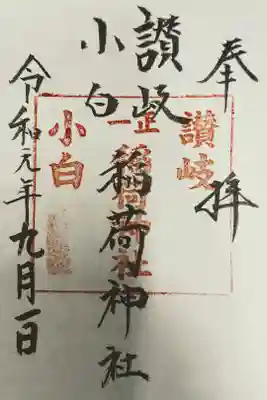 奉拝
讃岐
小白
稲荷神社
令和元年九月一日
讃岐
正一
稲荷社
小白